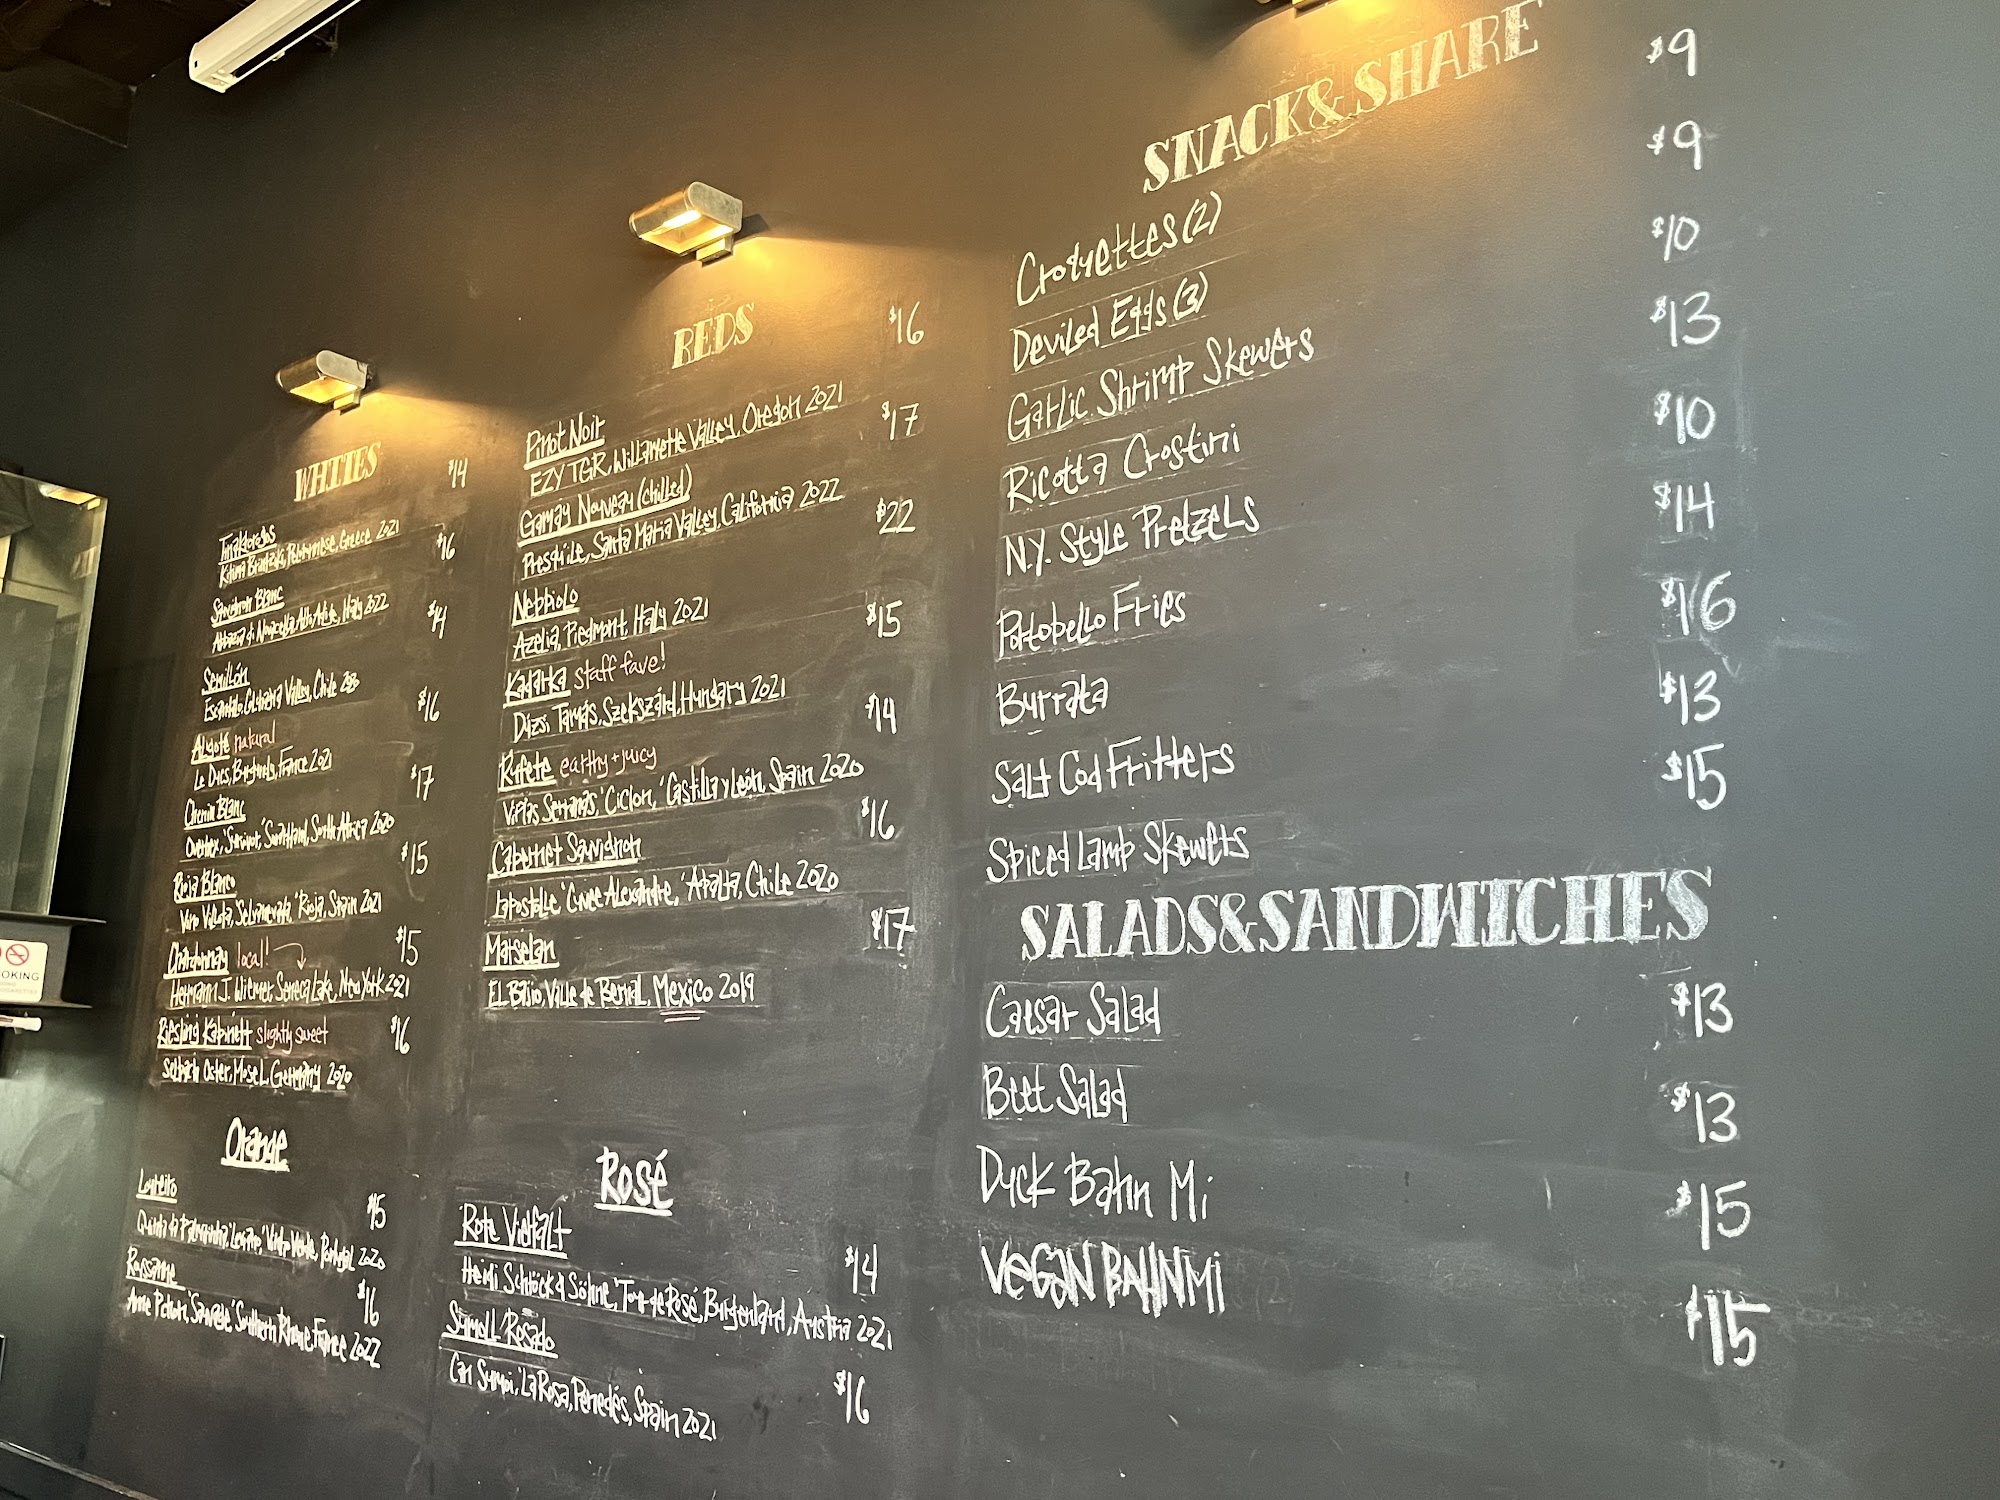 WHITES
Sauvignon Blanc $16
Abbazia di Novacella, Alto Adige, Italy 2022
Semillón $14
Valley, Chile
Aligoté natural $16
France 2021
Chenin Blanc $17
Swartland, South Africa 2020
Rioja Blanco $15
Rioja, Spain 2021
Chardonnay local! $15
Hermann J. Wiemer, Seneca Lake, New York 2021
Riesling Kabinett slightly sweet $16
Selbach Oster, Mosel, Germany 2020
Orange
Loureiro $15
Portugal 2020
Roussanne $16
Southern Rhone, France 2022
REDS
Pinot Noir $16
EZY TGR, Willamette Valley, Oregon 2021
Gamay Nouveau (chilled) $17
Presqu'ile, Santa Maria Valley, California 2022
Nebbiolo $22
Azelia, Piedmont, Italy 2021
Kadarka staff fave! $15
Dúzsi Tamás, Szekszárd, Hungary 2021
Rufete earthy + juicy $14
Viñas Serranas, 'Ciclon,' Castilla y León, Spain 2020
Cabernet Sauvignon $16
Lapostolle 'Cuvee Alexandre,' Apalta, Chile 2020
Marselan $17
El Bajio, Valle de Bernal, Mexico 2019
Rosé
Rote Vielfalt $14
Heidi Schröck & Söhne, 'Tour de Rosé, Burgenland, Austria 2021
Sumoll Rosado $16
Can Sumoi, 'La Rosa, Penedés, Spain 2021
SNACK & SHARE
Croquettes (2) $9
Deviled Eggs (3) $9
Garlic Shrimp Skewers $10
Ricotta Crostini $13
N.Y. Style Pretzels $10
Portobello Fries $14
Burrata $16
Salt Cod Fritters $13
Spiced Lamb Skewers $15
SALADS & SANDWICHES
Caesar Salad $13
Beet Salad $13
Duck Bahn Mi $15
VEGAN BAHN Mi $15